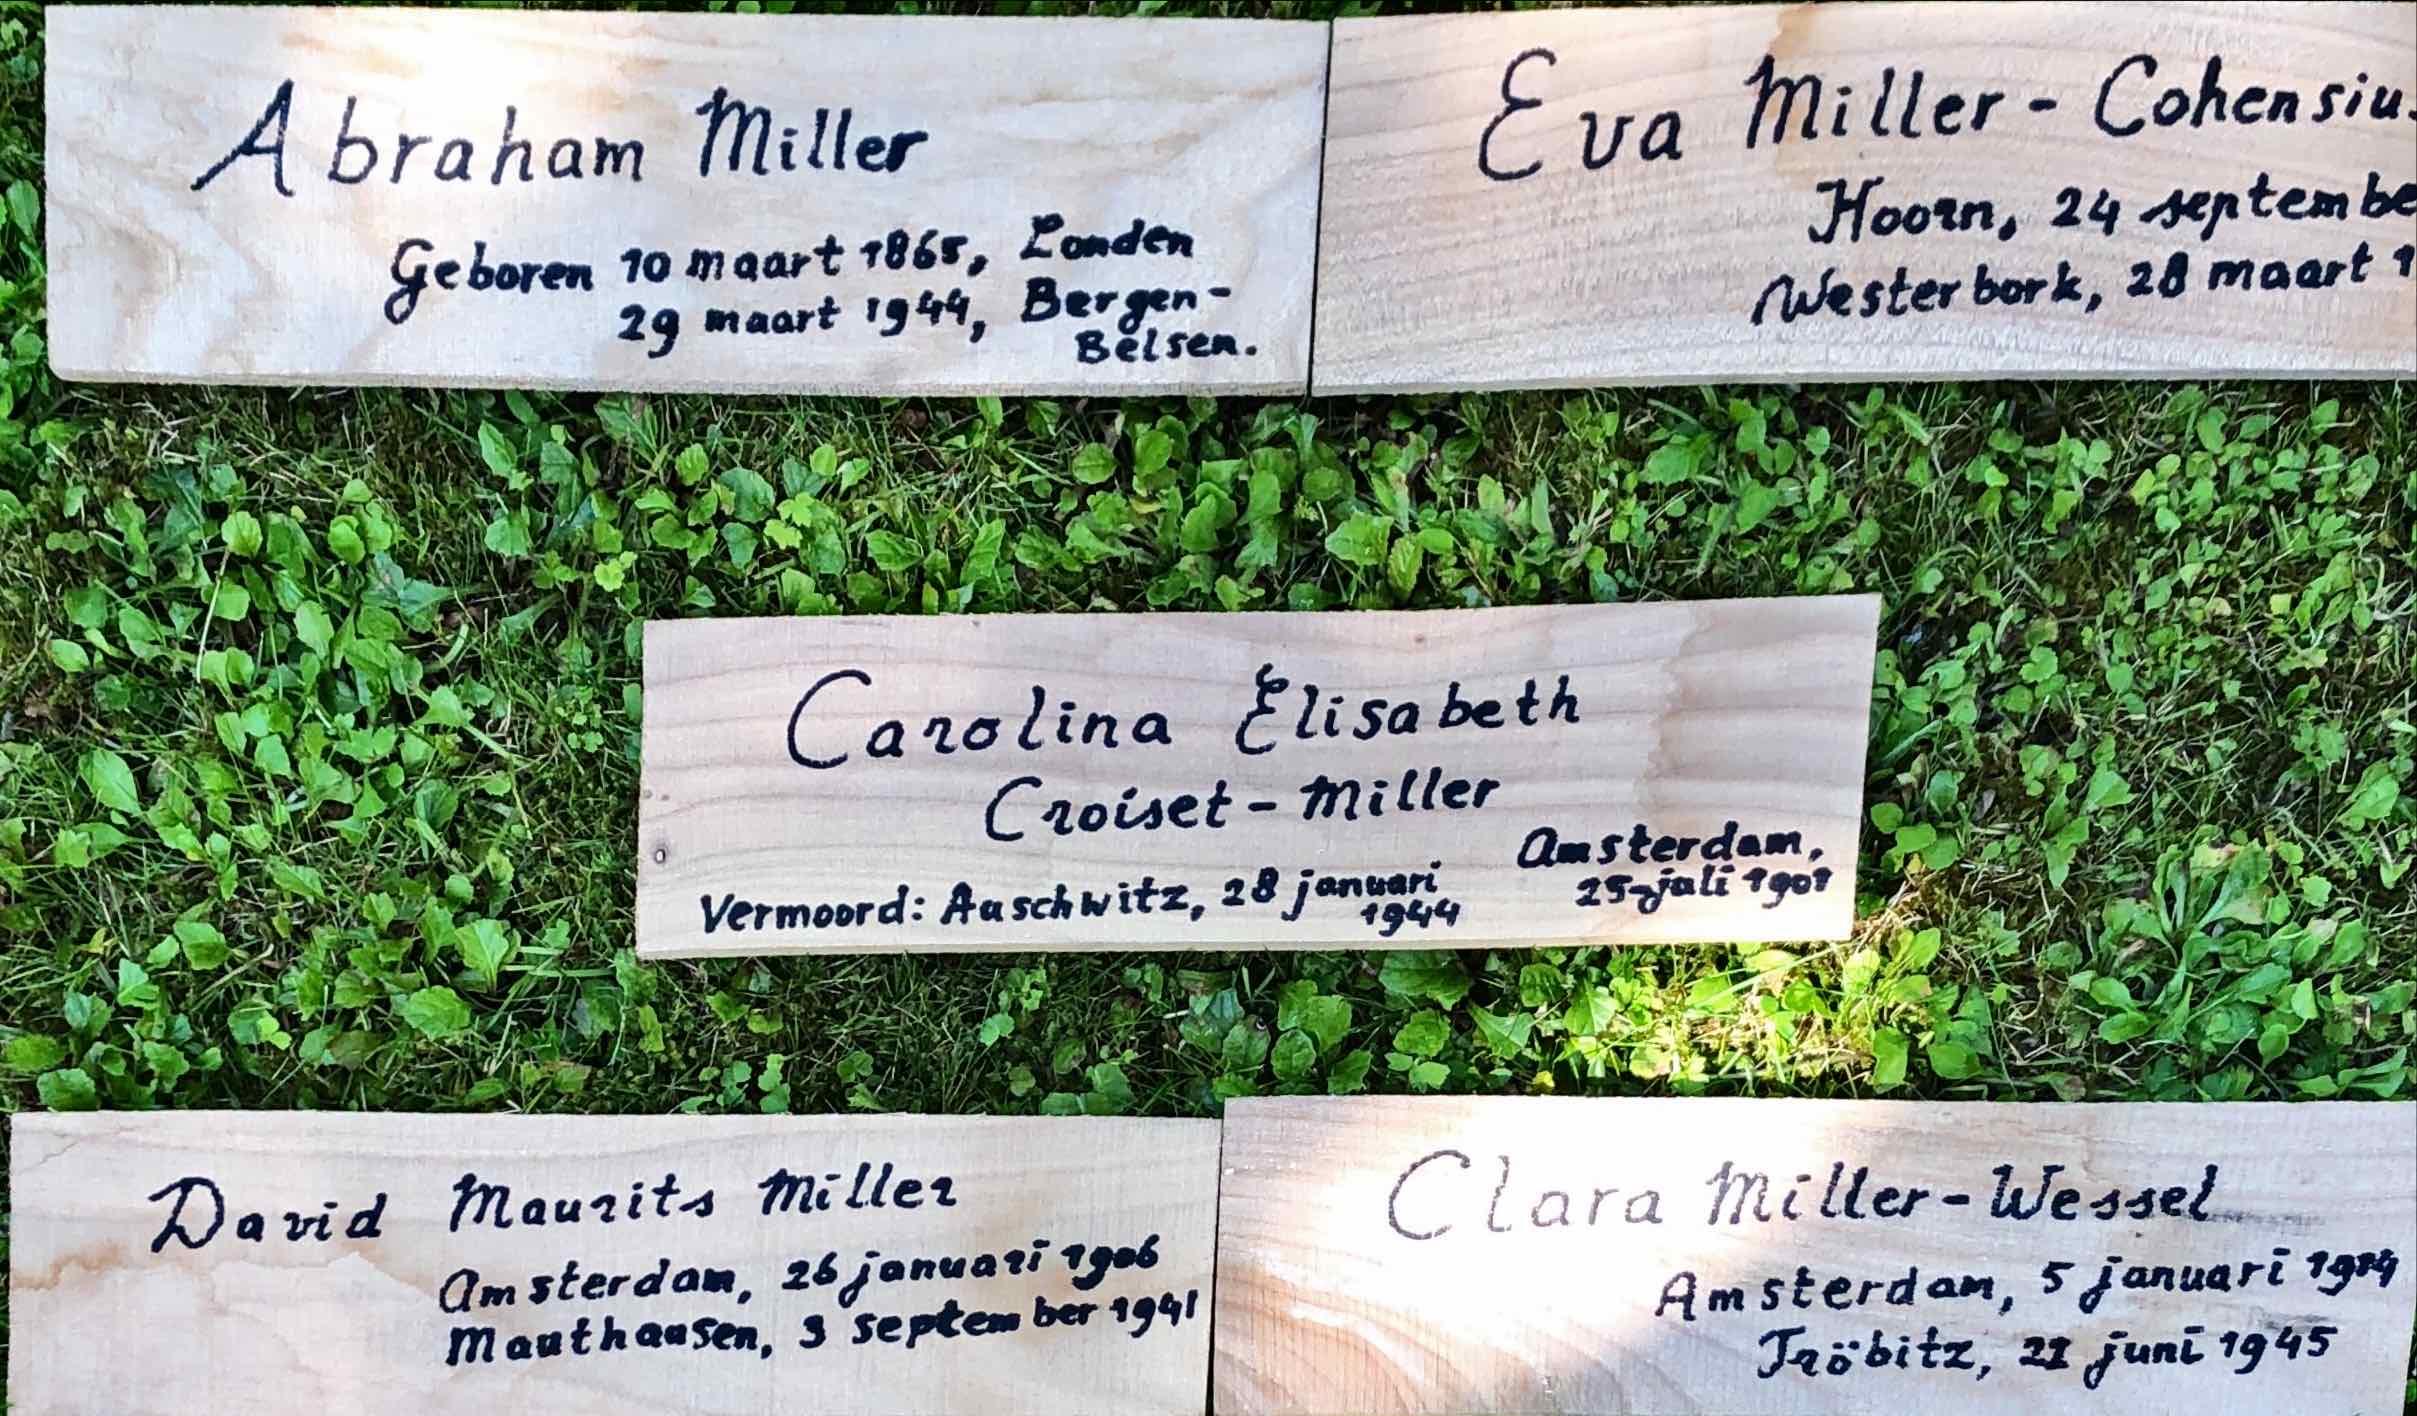 Abraham Miller
Geboren 10 maart 1865, Londen
29 maart 1944, Bergen-
Belsen.
Eva Miller - Cohensiu
Hoorn, 24 septembe
Westerbork, 28 maart 1
Carolina Elisabeth
Croiset - Miller
Amsterdam,
25 juli 1901
Vermoord: Auschwitz, 28 januari
1944
David Maurits Miller
Amsterdam, 26 januari 1906
Mauthausen, 3 september 1941
Clara Miller - Wessel
Amsterdam, 5 januari
Tröbitz, juni 1945